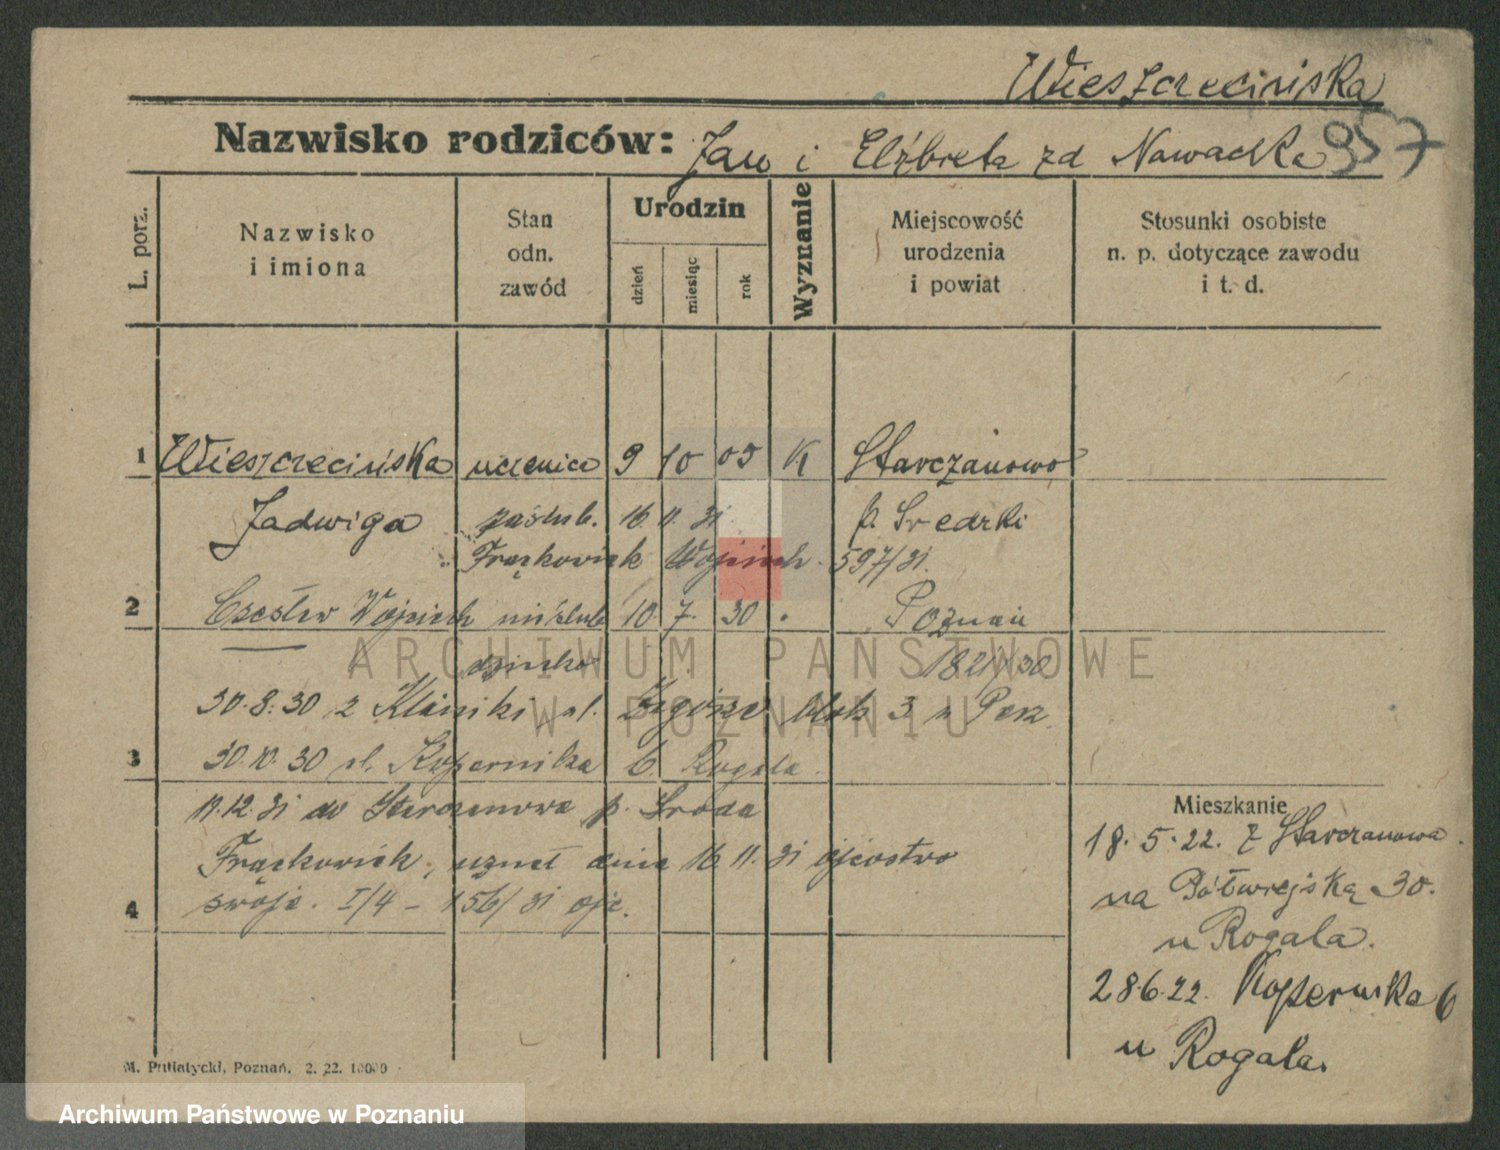 Wieszczecińska
Nazwisko rodziców: Jan i Elżbieta zd Nawacka 957
L. porz.
Nazwisko i imiona
Stan odn. zawód
Urodzin
dzień
miesiąc
rok
Wyznanie
Miejscowość urodzenia i powiat
Stosunki osobiste n. p. dotyczące zawodu i t. d.
1 Wieszczecińska uczenica 9 10 05 K Starczanowo
Jadwiga zaślub. 16 11 31 p. Średzki
Frąckowiak Wojciech 597/31.
2 Czesław Wojciech nieślub 10 7. 30 Poznań
dziecko
30.8.30 z Kliniki ul. blok 3 u
3 30.10.30 ul. Kopernika 6. Rogala
11.12.31 do Starczanowa p. Środa
Frąckowiak, uznał dnia 16 11. 31 ojcostwo
4 swoje. I/4 - 156/31 ojc.
Mieszkanie
18.5.22. z Starczanowa
na Półwiejską 30.
u Rogala.
28.6.22. Kopernika 6
u Rogala.
M. Putiatycki, Poznań. 2. 22. 10000
ARCHIWUM PAŃSTWOWE
W POZNANIU
Archiwum Państwowe w Poznaniu